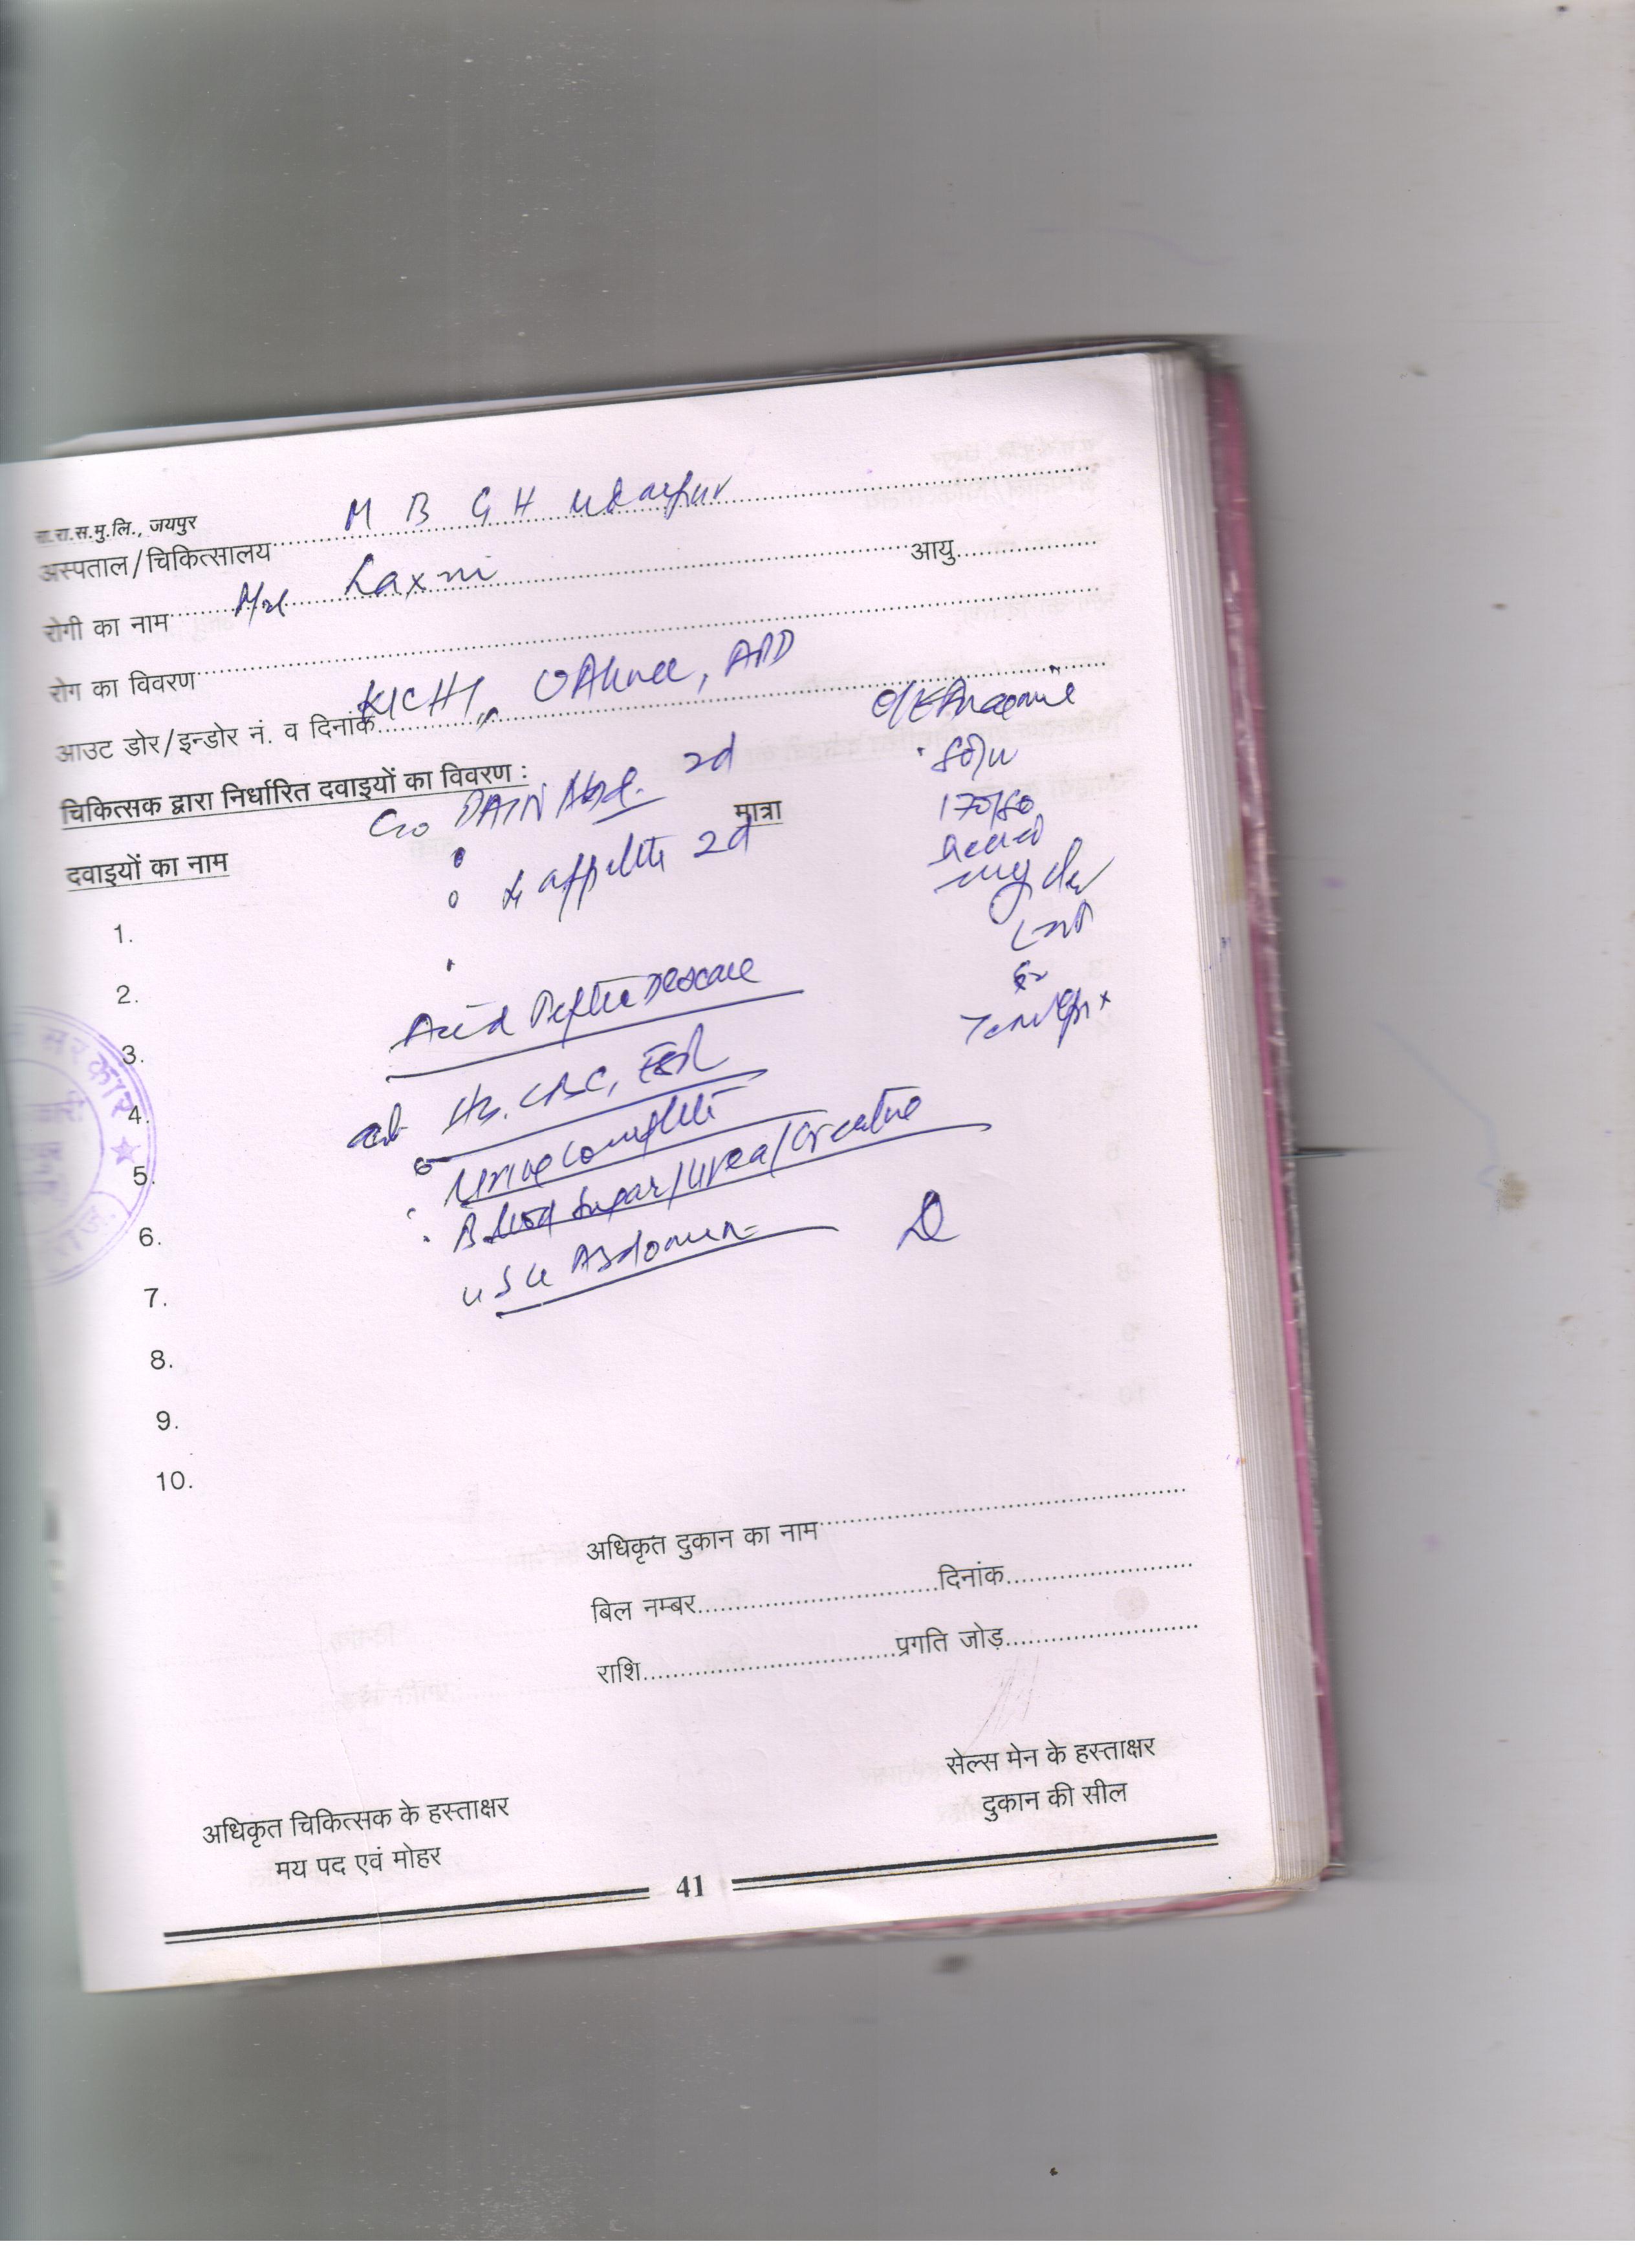 रा.रा.स.मु.लि., जयपुर
अस्पताल/चिकित्सालय M B G H Udaipur
रोगी का नाम Mrs Laxmi आयु
रोग का विवरण
आउट डोर/इन्डोर नं. व दिनांक K/C HT, OA knee, APD
चिकित्सक द्वारा निर्धारित दवाइयों का विवरण :
दवाइयों का नाम मात्रा
C/o PAIN Abd. 2d
appetite 2d
O/E Anaemic
80/m
170/80
Acid Peptic Disease
Hb. CBC, ESR
Urine complete
Blood Sugar/Urea/Creatine
USG Abdomen
1.
2.
3.
4.
5.
6.
7.
8.
9.
10.
सरकार
राज.
अधिकृत दुकान का नाम
बिल नम्बर दिनांक
राशि प्रगति जोड़
सेल्स मेन के हस्ताक्षर
दुकान की सील
अधिकृत चिकित्सक के हस्ताक्षर
मय पद एवं मोहर
41